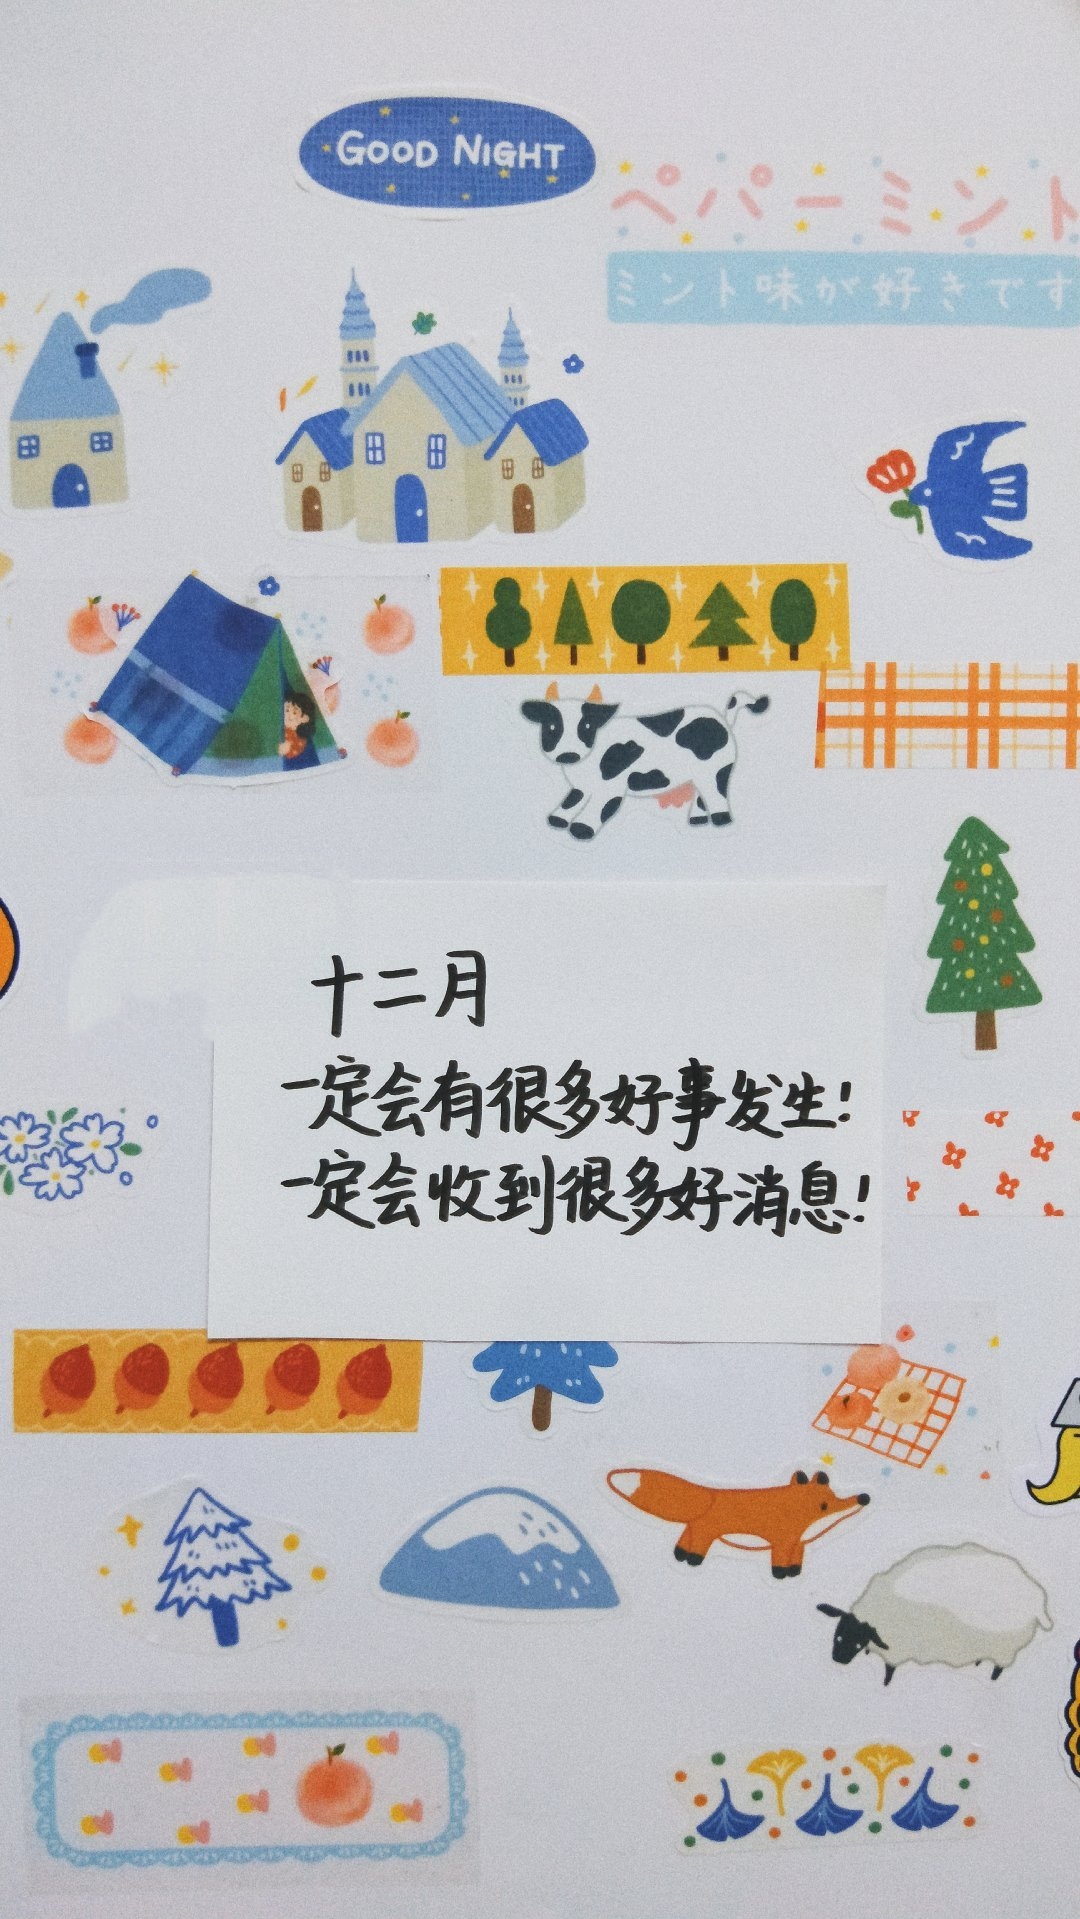 GOOD NIGHT
ペパーミント
ミント味が好きです
十二月
一定会有很多好事发生!
一定会收到很多好消息!